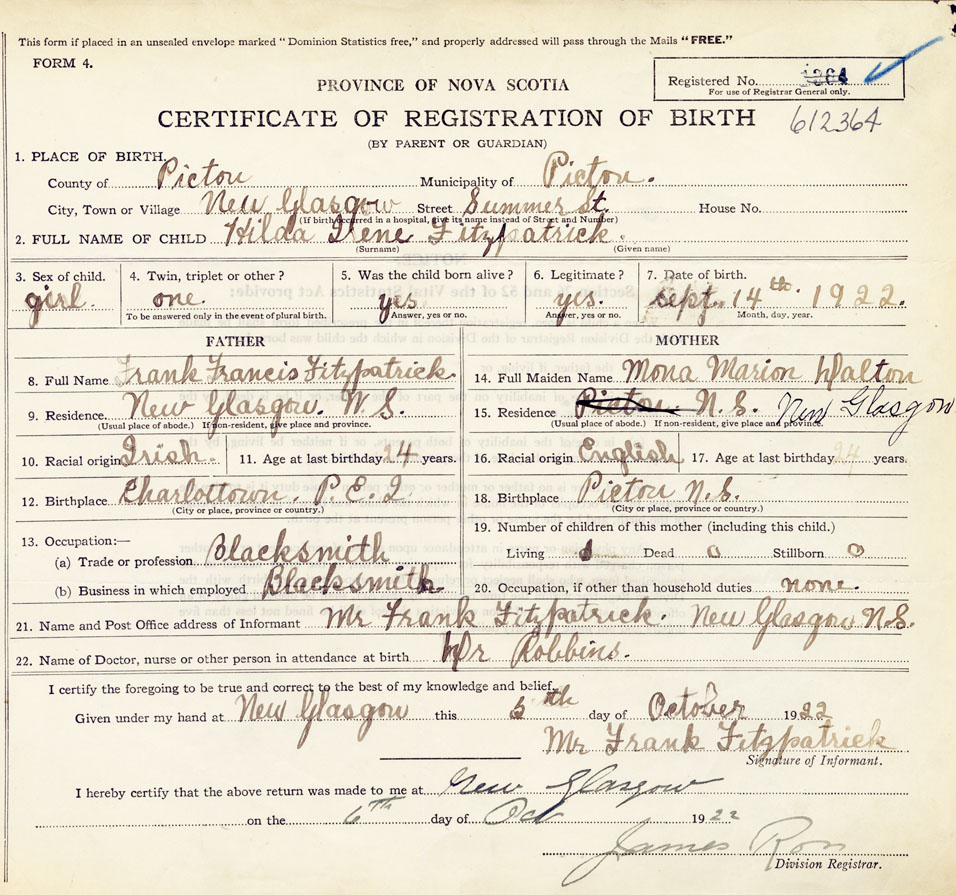 This form if placed in an unsealed envelope marked "Dominion Statistics free," and properly addressed will pass through the Mails "FREE."
FORM 4.
Registered No.
For use of Registrar General only.
PROVINCE OF NOVA SCOTIA
CERTIFICATE OF REGISTRATION OF BIRTH 612364
(BY PARENT OR GUARDIAN)
1. PLACE OF BIRTH.
County of Pictou Municipality of Pictou.
City, Town or Village New Glasgow Street Summer St. House No.
(If birth occurred in a hospital, give its name instead of Street and Number)
2. FULL NAME OF CHILD Hilda Irene Fitzpatrick.
(Surname) (Given name)
3. Sex of child. 4. Twin, triplet or other? 5. Was the child born alive? 6. Legitimate? 7. Date of birth.
girl. one. yes. yes. Sept. 14th. 1922.
To be answered only in the event of plural birth. Answer, yes or no. Answer, yes or no. Month, day, year.
FATHER MOTHER
8. Full Name Frank Francis Fitzpatrick. 14. Full Maiden Name Mona Marion Dalton
9. Residence. New Glasgow. N.S. 15. Residence Pictou. N.S. New Glasgow
(Usual place of abode.) If non-resident, give place and province. (Usual place of abode.) If non-resident, give place and province.
10. Racial origin Irish. 11. Age at last birthday 24 years. 16. Racial origin English 17. Age at last birthday 24 years.
12. Birthplace Charlottown. P.E.I 18. Birthplace Pictou N.S.
(City or place, province or country.) (City or place, province or country.)
13. Occupation:— 19. Number of children of this mother (including this child.)
(a) Trade or profession Blacksmith Living 1 Dead 0 Stillborn 0
(b) Business in which employed Blacksmith. 20. Occupation, if other than household duties none.
21. Name and Post Office address of Informant Mr Frank Fitzpatrick. New Glasgow N.S.
22. Name of Doctor, nurse or other person in attendance at birth Dr Robbins.
I certify the foregoing to be true and correct to the best of my knowledge and belief.
Given under my hand at New Glasgow this 5th day of October 1922
Mr Frank Fitzpatrick
Signature of Informant.
I hereby certify that the above return was made to me at New Glasgow
on the 6th day of Oct 1922
James
Division Registrar.